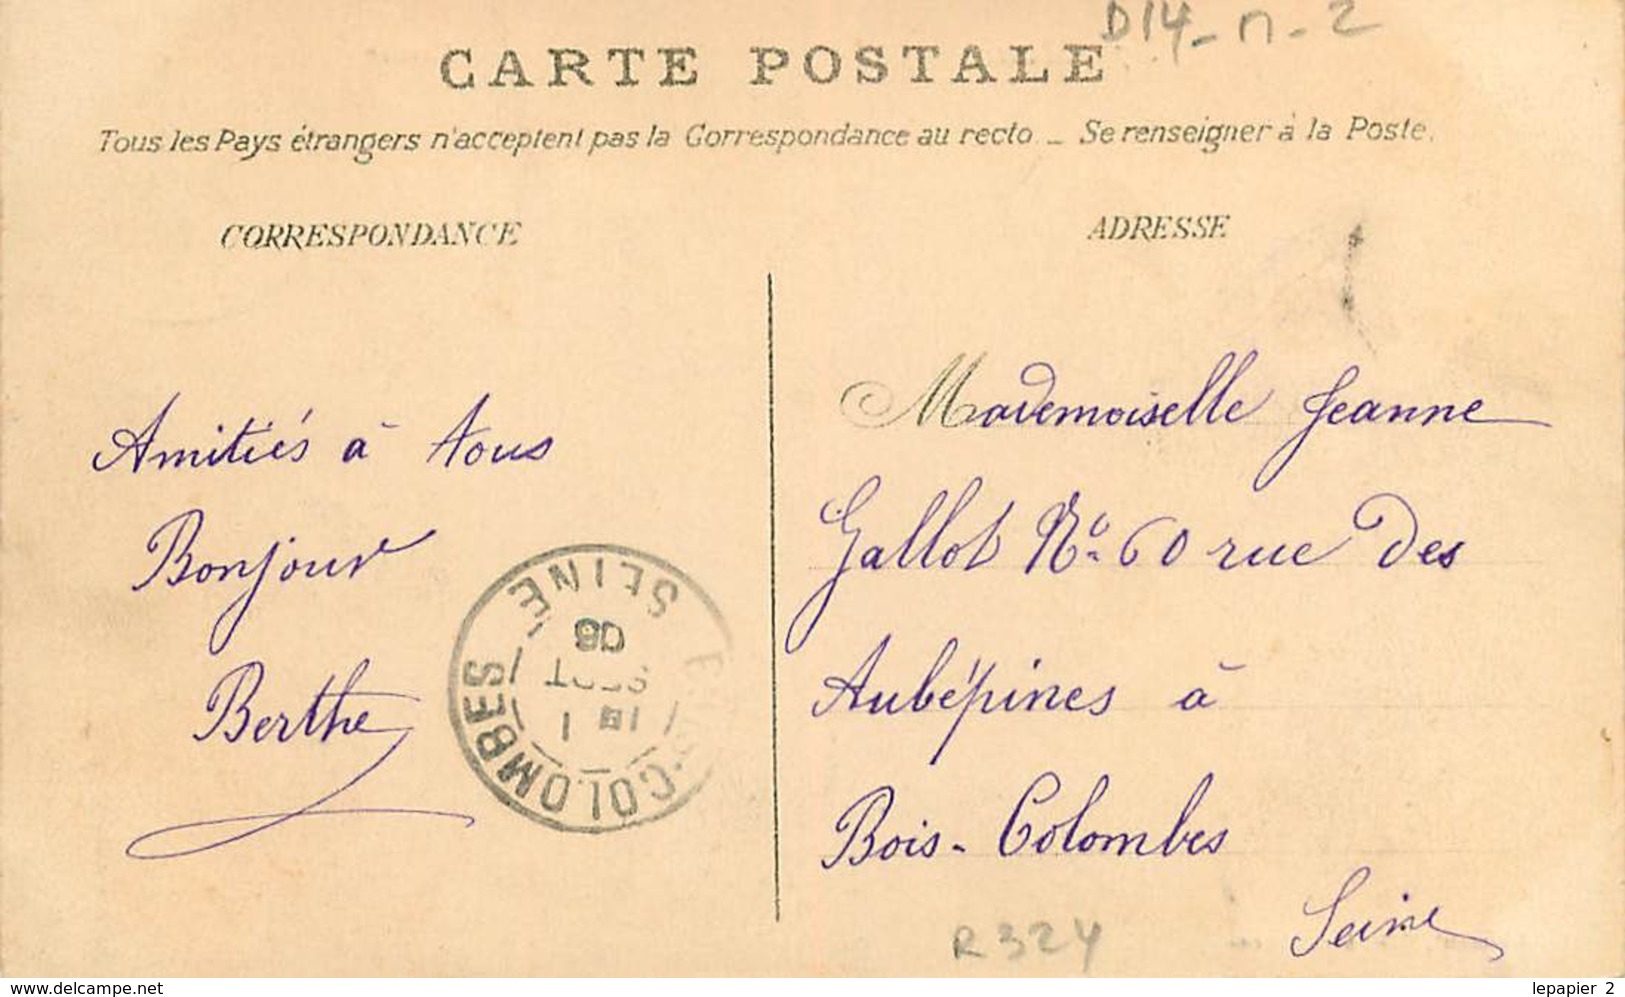 D14-n-2
CARTE POSTALE
Tous les Pays étrangers n'acceptent pas la Correspondance au recto _ Se renseigner à la Poste.
CORRESPONDANCE
ADRESSE
Amitiés à tous
Bonjour
Berthe
COLOMBES
SEINE
Mademoiselle Jeanne
Gallot No 60 rue Des
Aubépines à
Bois-Colombes
Seine
R324
www.delcampe.net
lepapier_2